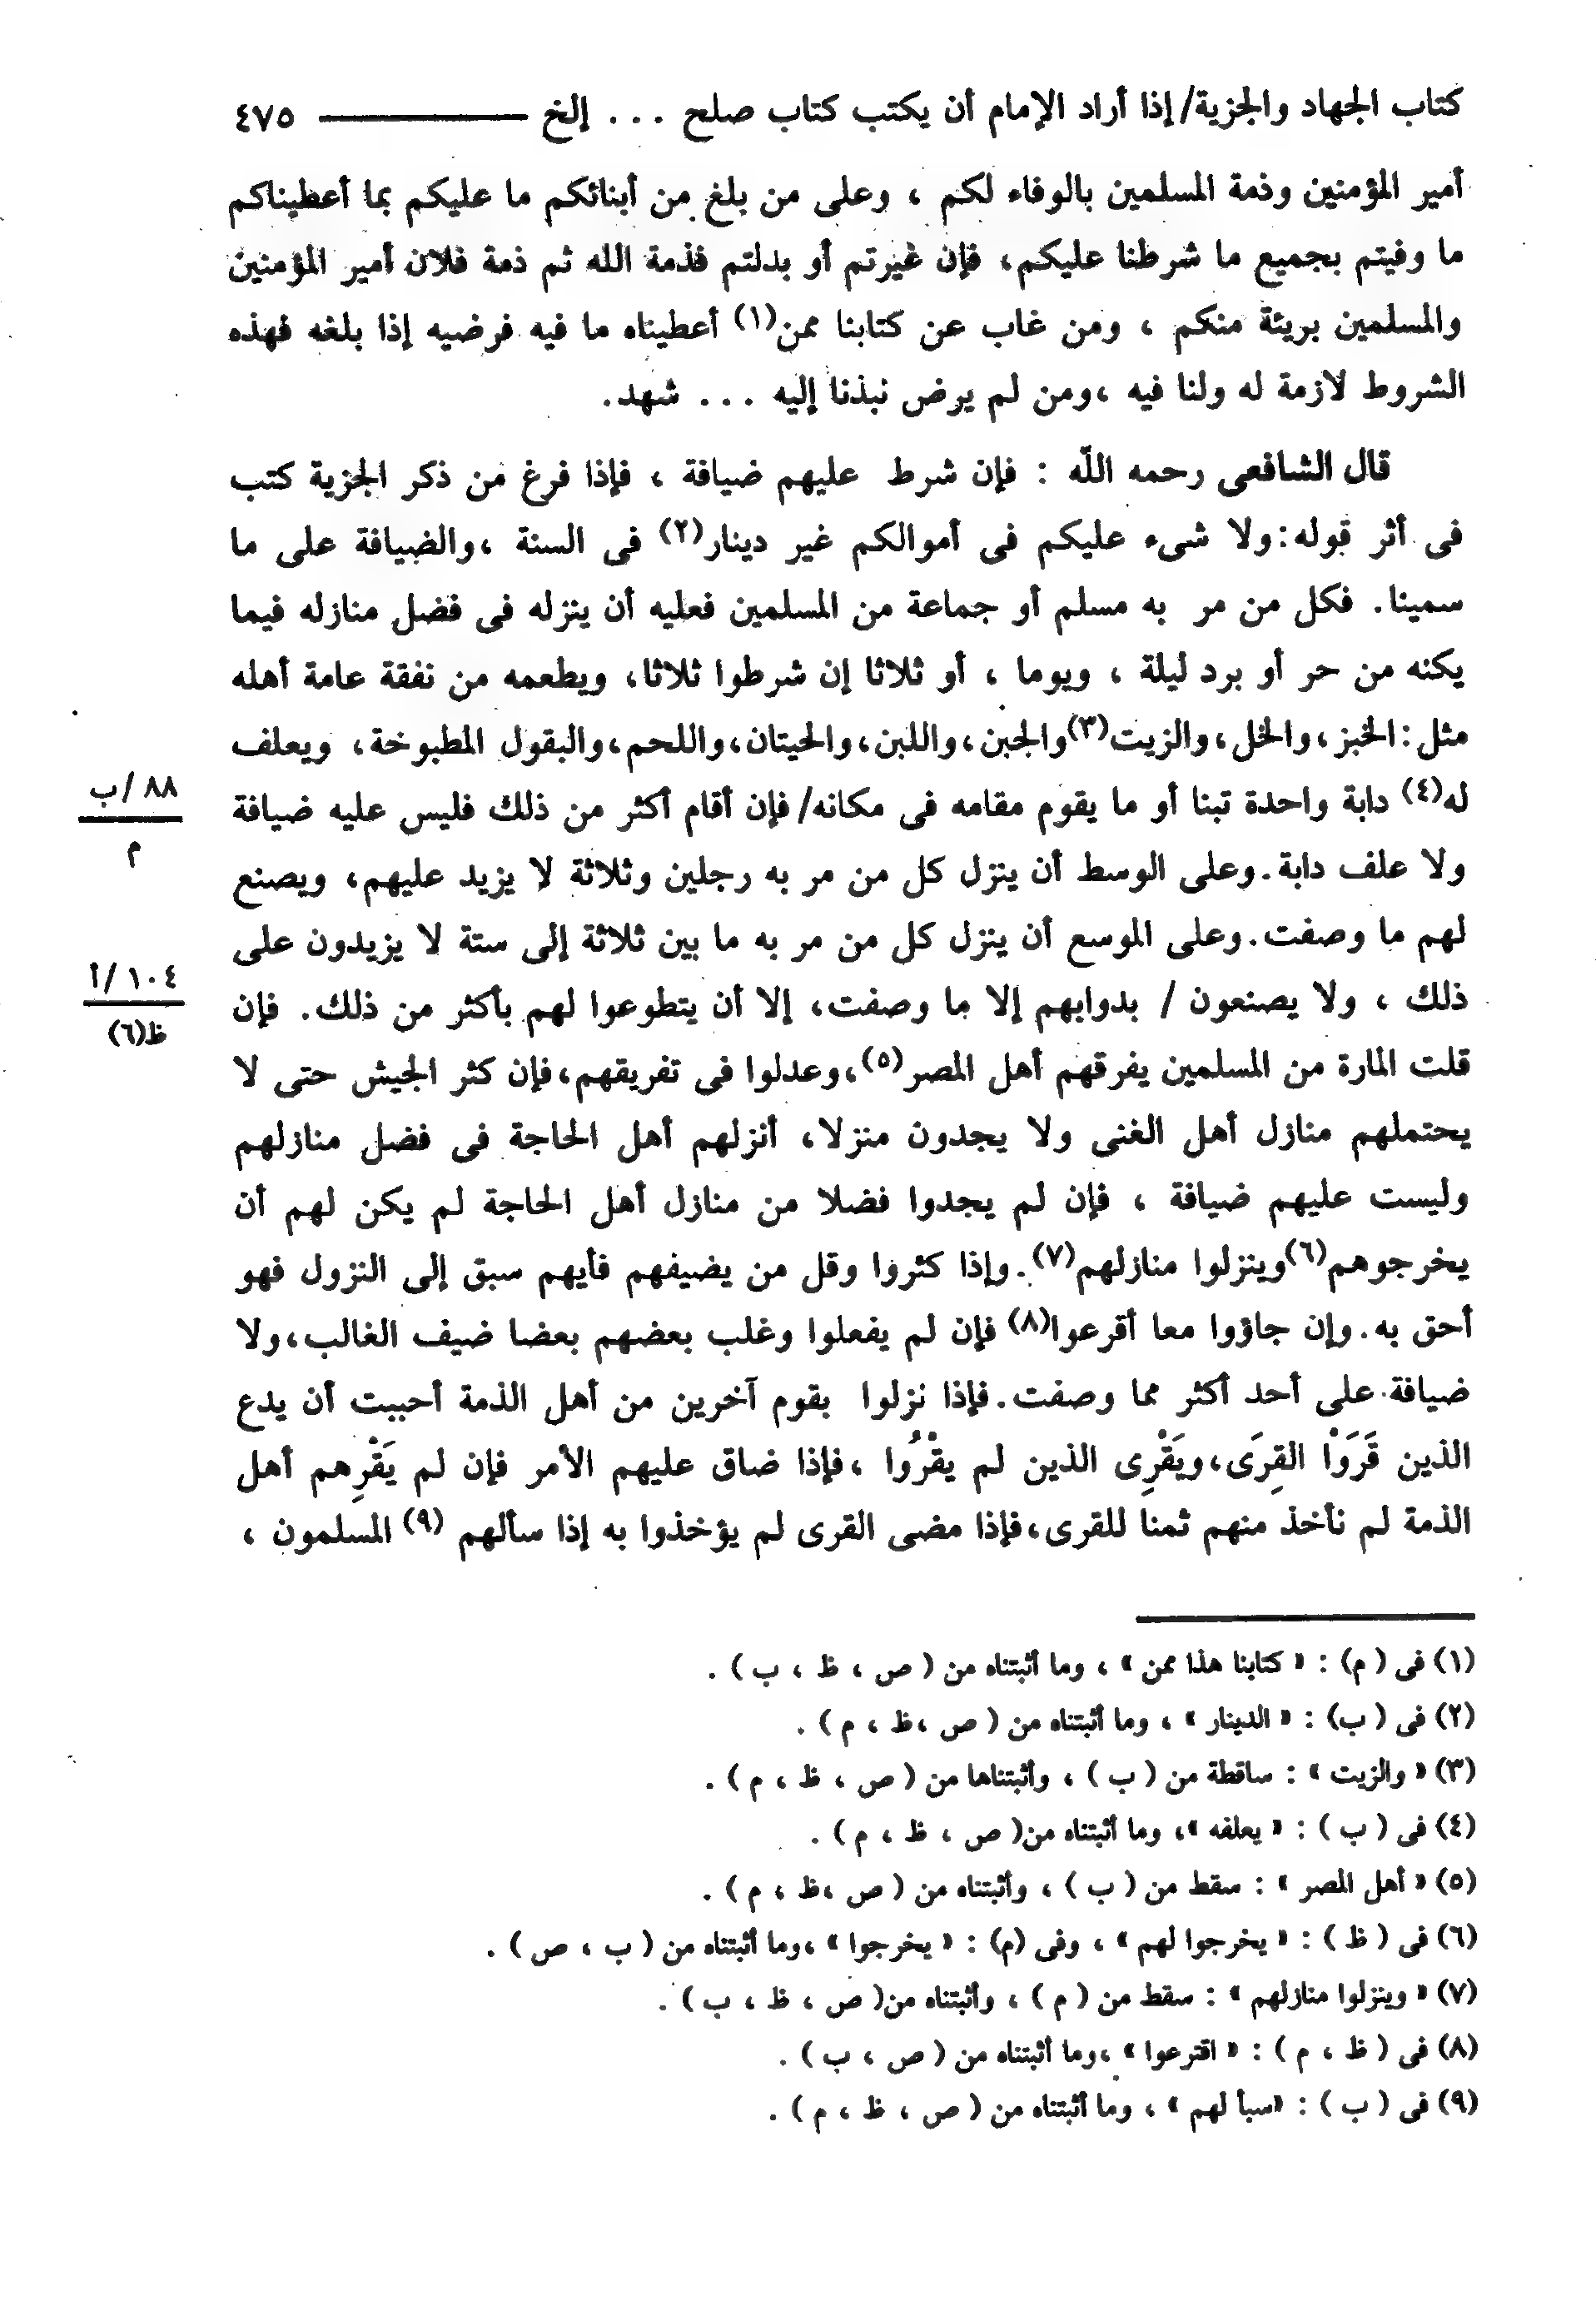 كتاب الجهاد والجزية/ إذا أراد الإمام أن يكتب كتاب صلح . . . إلخ ــــــــ ٤٧٥
أمير المؤمنين وذمة المسلمين بالوفاء لكم ، وعلى من بلغ من أبنائكم ما عليكم بما أعطيناكم
ما وفيتم بجميع ما شرطنا عليكم، فإن غيرتم أو بدلتم فذمة الله ثم ذمة فلان أمير المؤمنين
والمسلمين بريئة منكم ، ومن غاب عن كتابنا ممن(١) أعطيناه ما فيه فرضيه إذا بلغه فهذه
الشروط لازمة له ولنا فيه ،ومن لم يرض نبذنا إليه . . . شهد.
قال الشافعى رحمه اللّه : فإن شرط عليهم ضيافة ، فإذا فرغ من ذكر الجزية كتب
فى أثر قوله:ولا شىء عليكم فى أموالكم غير دينار(٢) فى السنة ،والضيافة على ما
سمينا. فكل من مر به مسلم أو جماعة من المسلمين فعليه أن ينزله فى فضل منازله فيما
يكنه من حر أو برد ليلة ، ويوما ، أو ثلاثا إن شرطوا ثلاثا، ويطعمه من نفقة عامة أهله
مثل:الخبز،والخل،والزيت(٣)والجبن،واللبن،والحيتان،واللحم،والبقول المطبوخة، ويعلف
له(٤) دابة واحدة تبنا أو ما يقوم مقامه فى مكانه/ فإن أقام أكثر من ذلك فليس عليه ضيافة
٨٨/ب
م
ولا علف دابة.وعلى الوسط أن ينزل كل من مر به رجلين وثلاثة لا يزيد عليهم، ويصنع
لهم ما وصفت.وعلى الموسع أن ينزل كل من مر به ما بين ثلاثة إلى ستة لا يزيدون على
ذلك ، ولا يصنعون / بدوابهم إلا ما وصفت، إلا أن يتطوعوا لهم بأكثر من ذلك. فإن
١٠٤/أ
ظ(٦)
قلت المارة من المسلمين يفرقهم أهل المصر(٥)،وعدلوا فى تفريقهم،فإن كثر الجيش حتى لا
يحتملهم منازل أهل الغنى ولا يجدون منزلا، أنزلهم أهل الحاجة فى فضل منازلهم
وليست عليهم ضيافة ، فإن لم يجدوا فضلا من منازل أهل الحاجة لم يكن لهم أن
يخرجوهم(٦)وينزلوا منازلهم(٧).وإذا كثروا وقل من يضيفهم فأيهم سبق إلى النزول فهو
أحق به.وإن جاؤوا معا أقرعوا(٨) فإن لم يفعلوا وغلب بعضهم بعضا ضيف الغالب،ولا
ضيافة على أحد أكثر مما وصفت.فإذا نزلوا بقوم آخرين من أهل الذمة أحببت أن يدع
الذين قَرَوْا القِرَى،ويَقْرِى الذين لم يقْرُوا ،فإذا ضاق عليهم الأمر فإن لم يَقْرِهم أهل
الذمة لم نأخذ منهم ثمنا للقرى،فإذا مضى القرى لم يؤخذوا به إذا سألهم (٩) المسلمون ،
(١) فى ( م) : « كتابنا هذا ممن » ، وما أثبتناه من ( ص ، ظ ، ب ) .
(٢) فى ( ب) : « الدينار » ، وما أثبتناه من ( ص ،ظ ، م ) .
(٣) « والزيت » : ساقطة من ( ب ) ، وأثبتناها من ( ص ، ظ ، م ) .
(٤) فى ( ب ) : « يعلفه »، وما أثبتناه من( ص ، ظ ، م ) .
(٥) « أهل المصر » : سقط من ( ب ) ، وأثبتناه من ( ص ،ظ ، م ) .
(٦) فى ( ظ ) : « يخرجوا لهم » ، وفى (م) : « يخرجوا » ،وما أثبتناه من ( ب ، ص ) .
(٧) « وينزلوا منازلهم » : سقط من ( م ) ، وأثبتناه من( ص ، ظ ، ب ) .
(٨) فى ( ظ ، م ) : « اقترعوا » ،وما أثبتناه من ( ص ، ب ) .
(٩) فى ( ب ) : «سبأ لهم » ، وما أثبتناه من ( ص ، ظ ، م ) .